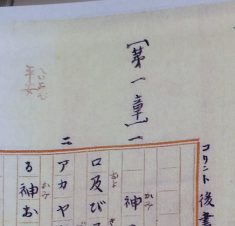 コリント後書
［第一章］一　神
ロ及び
二アカヤ
る神お